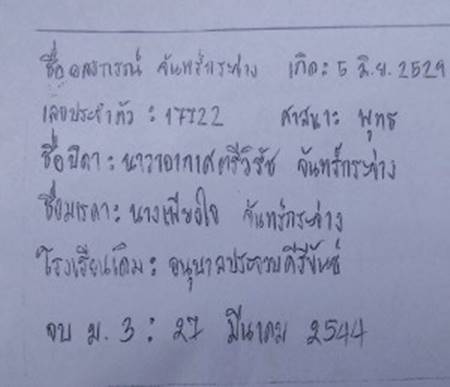 ชื่อ อลงกรณ์ จันทร์กระจ่าง เกิด: 5 มิ.ย. 2529
เลขประจำตัว : 17722 ศาสนา: พุทธ
ชื่อบิดา : นาวาอากาศตรีวิรัช จันทร์กระจ่าง
ชื่อมารดา: นางเพียงใจ จันทร์กระจ่าง
โรงเรียนเดิม: อนุบาลประจวบคีรีขันธ์
จบ ม. 3 : 27 มีนาคม 2544